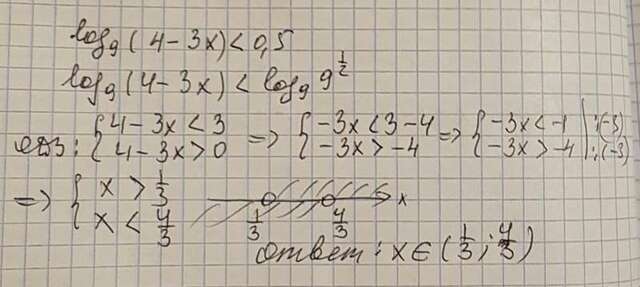 log₉(4-3x)<0,5
log₉(4-3x)<log₉9^½
одз: {4-3x<3 => {-3x<3-4 => {-3x<-1 | :(-3)
{4-3x>0 {-3x>-4 {-3x>-4 | :(-3)
=> {x>1/3
{x<4/3
1/3 4/3 x
ответ: x∈(1/3; 4/3)